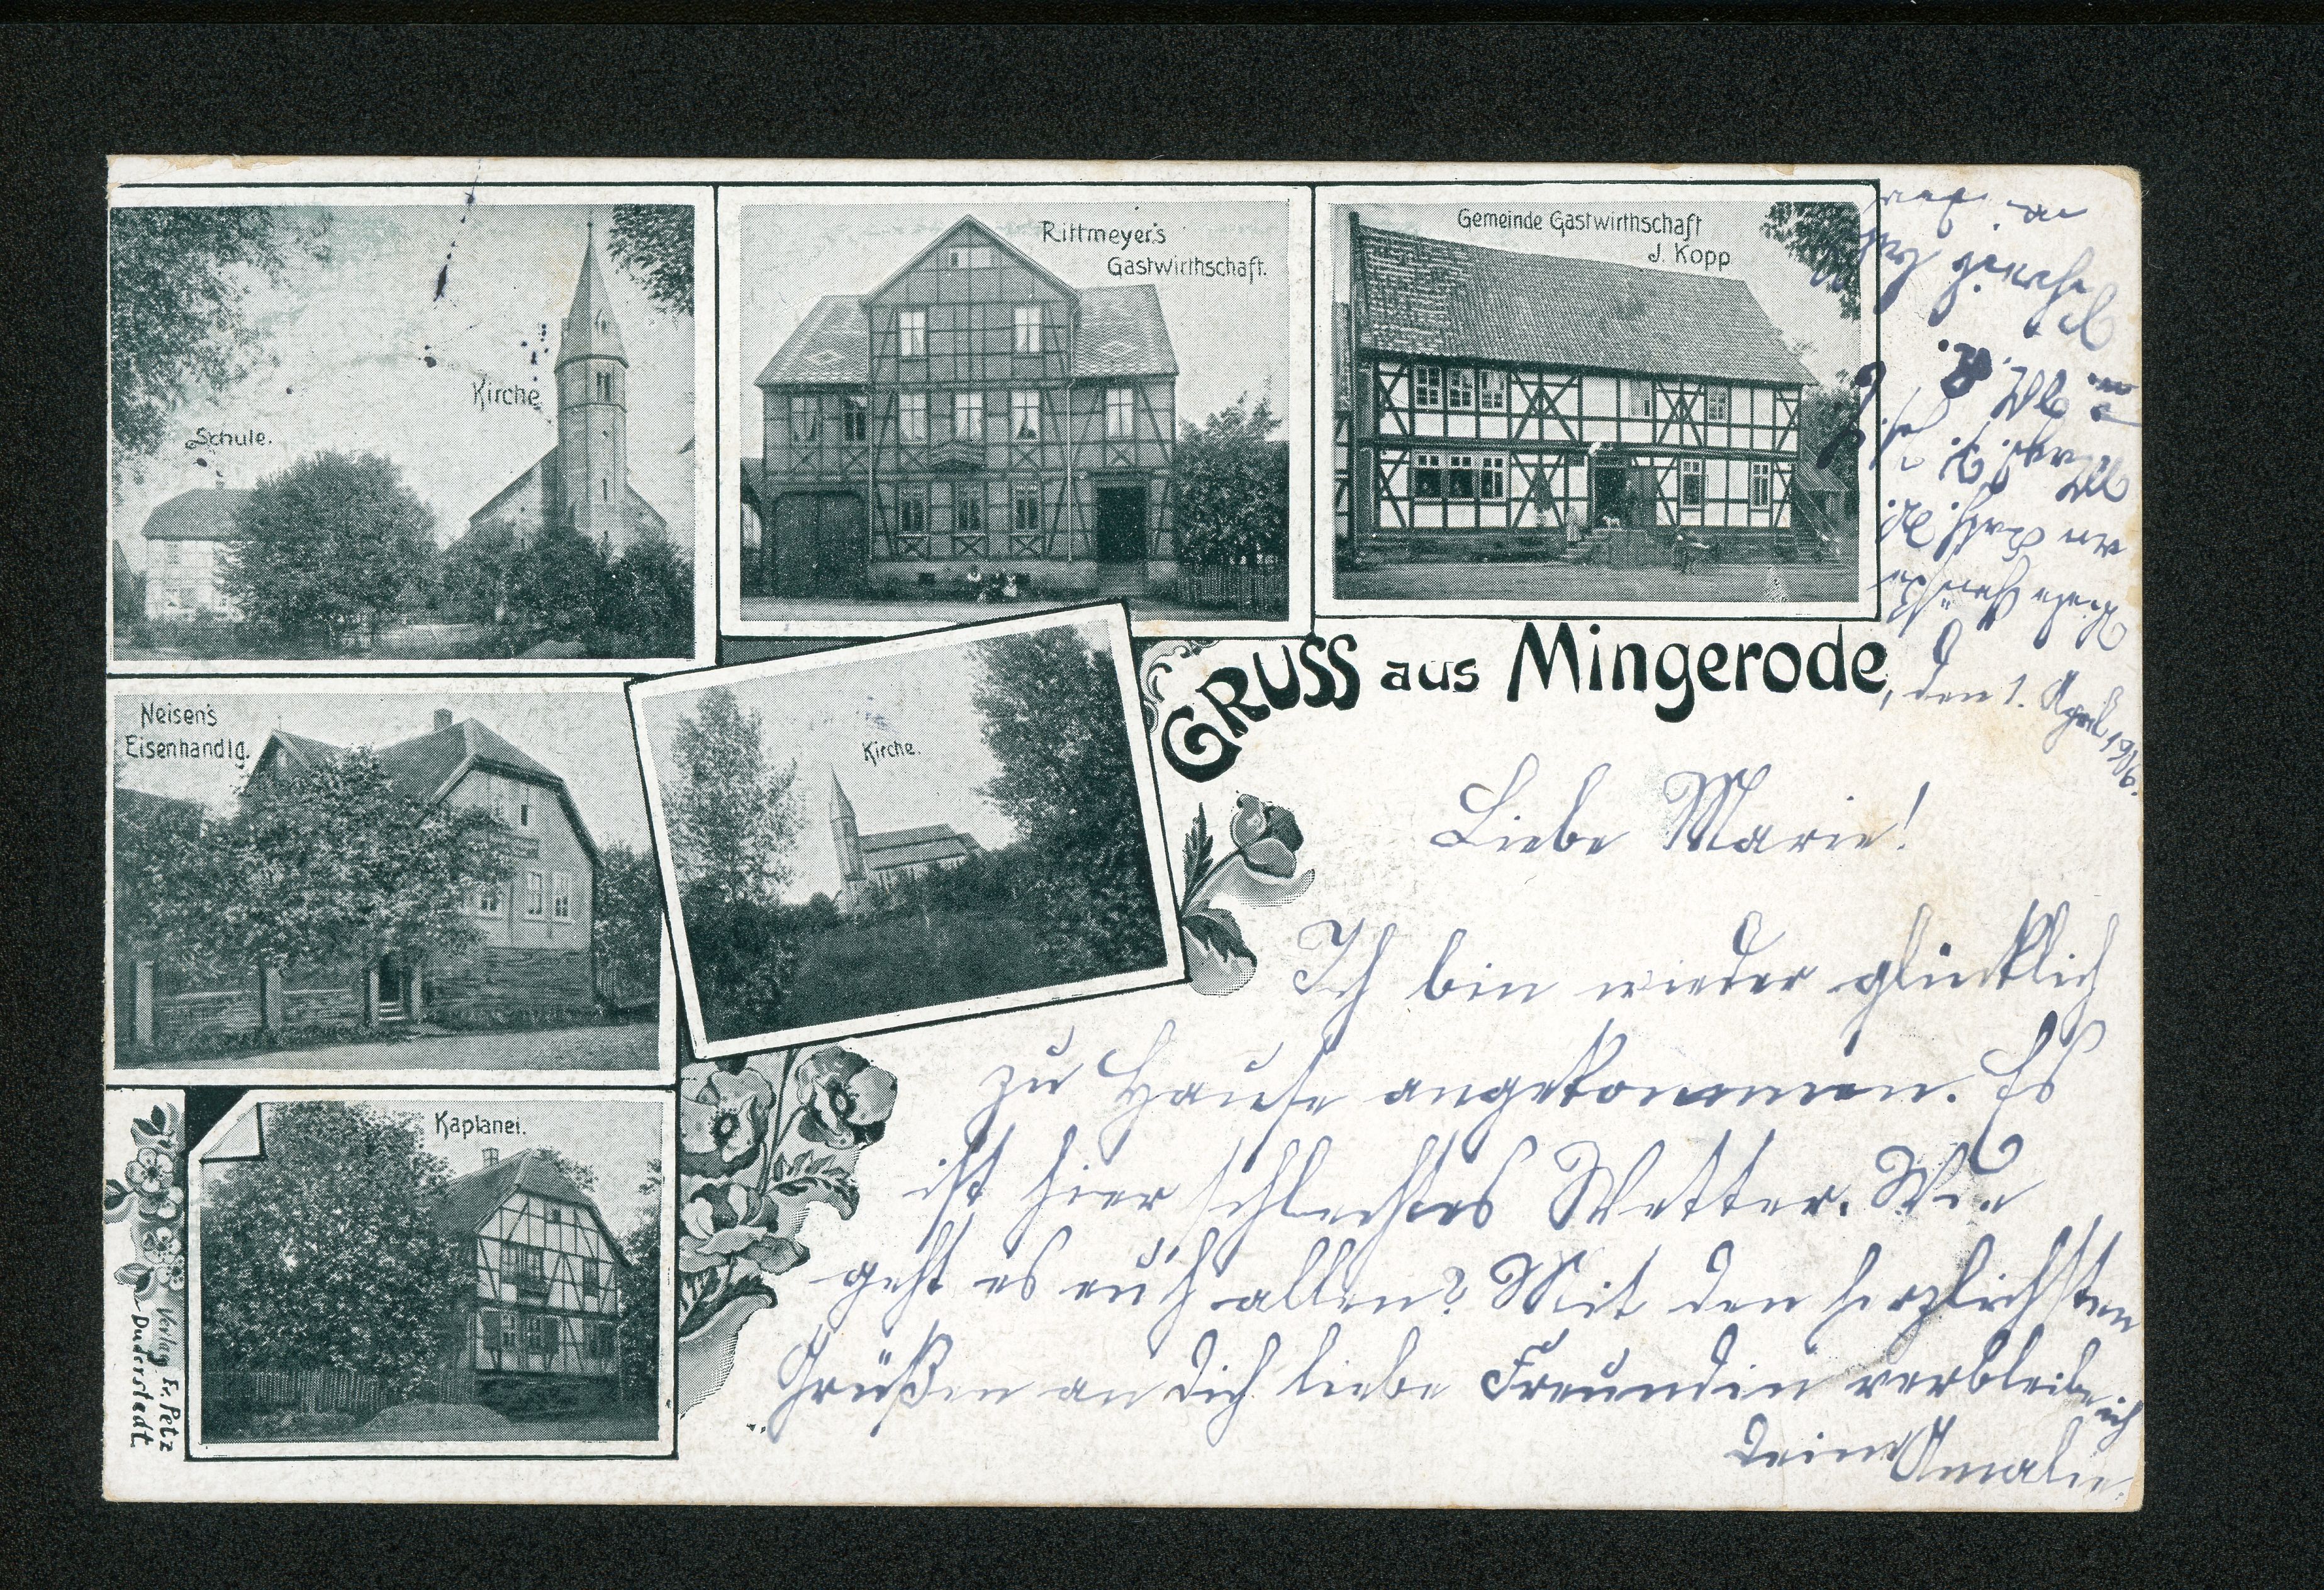 Schule.
Kirche
Rittmeyer's
Gastwirthschaft.
Gemeinde Gastwirthschaft
J. Kopp
Neisen's
Eisenhandlg.
Kirche.
Kaplanei.
Verlag E. Petz
Duderstedt.
GRUSS aus Mingerode, den 1. April 1906.
Liebe Marie!
Ich bin wieder glücklich
zu Hause angekommen. Es
ist hier schlechtes Wetter. Wie
geht es euch allen? Mit den herzlichsten
Grüßen an dich liebe Freundin verbleibe ich
deine Amalie.
Viele Grüße